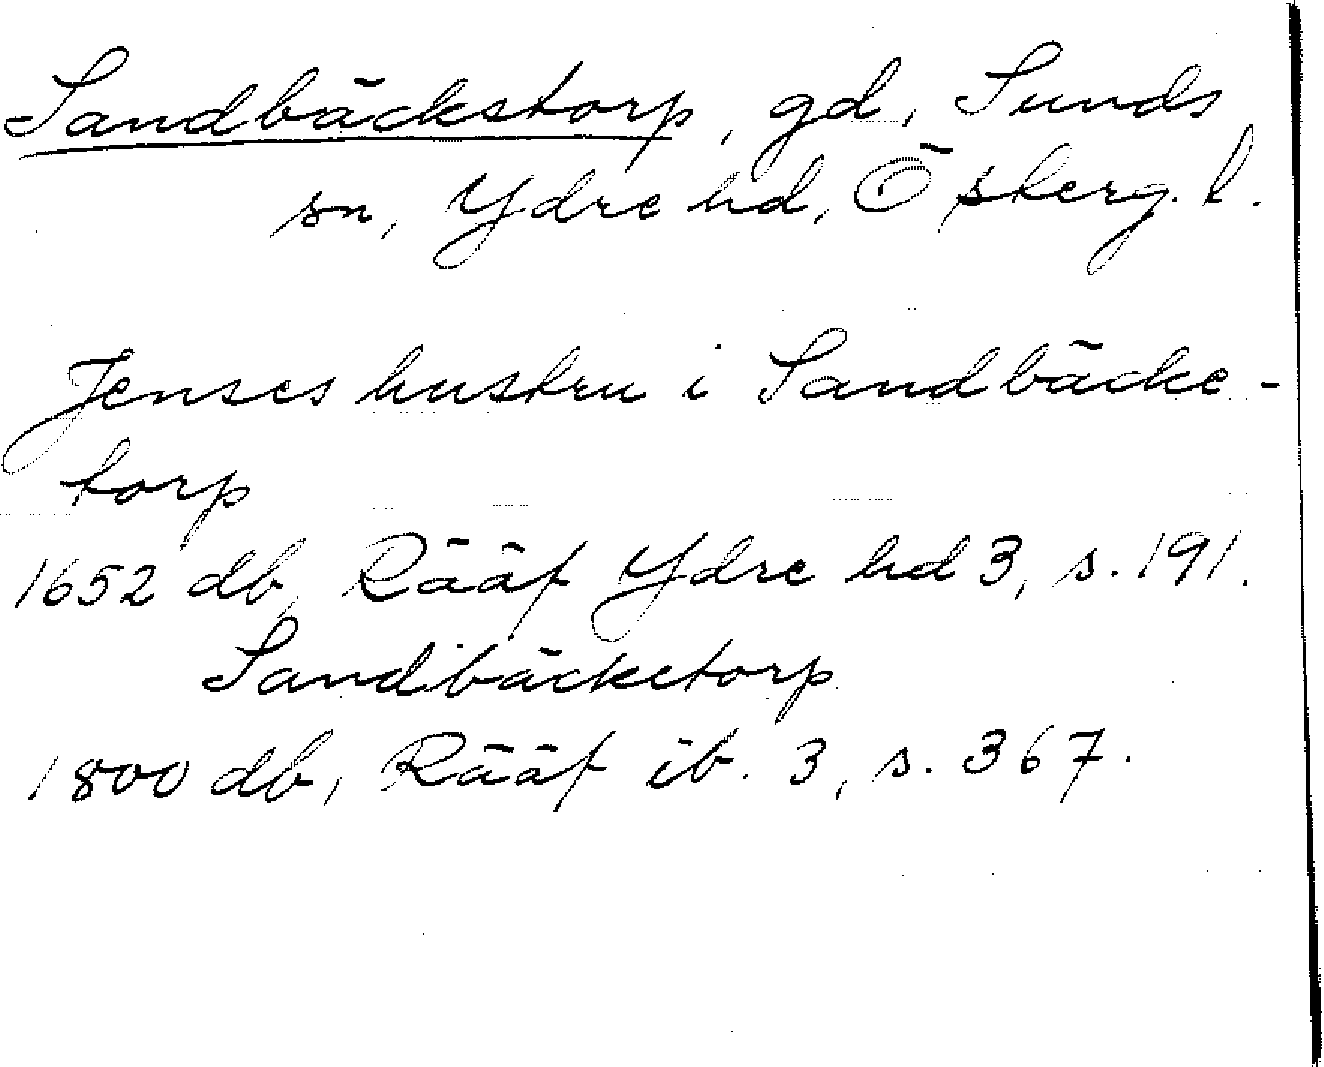 Sandbäckstorp, gd, Sunds
sn, Ydre hd, Österg. l.
Jenses hustru i Sandbäcke-
torp
1652 db, Rääf Ydre hd 3, s. 191.
Sandbäcketorp
1800 db, Rääf ib. 3, s. 367.